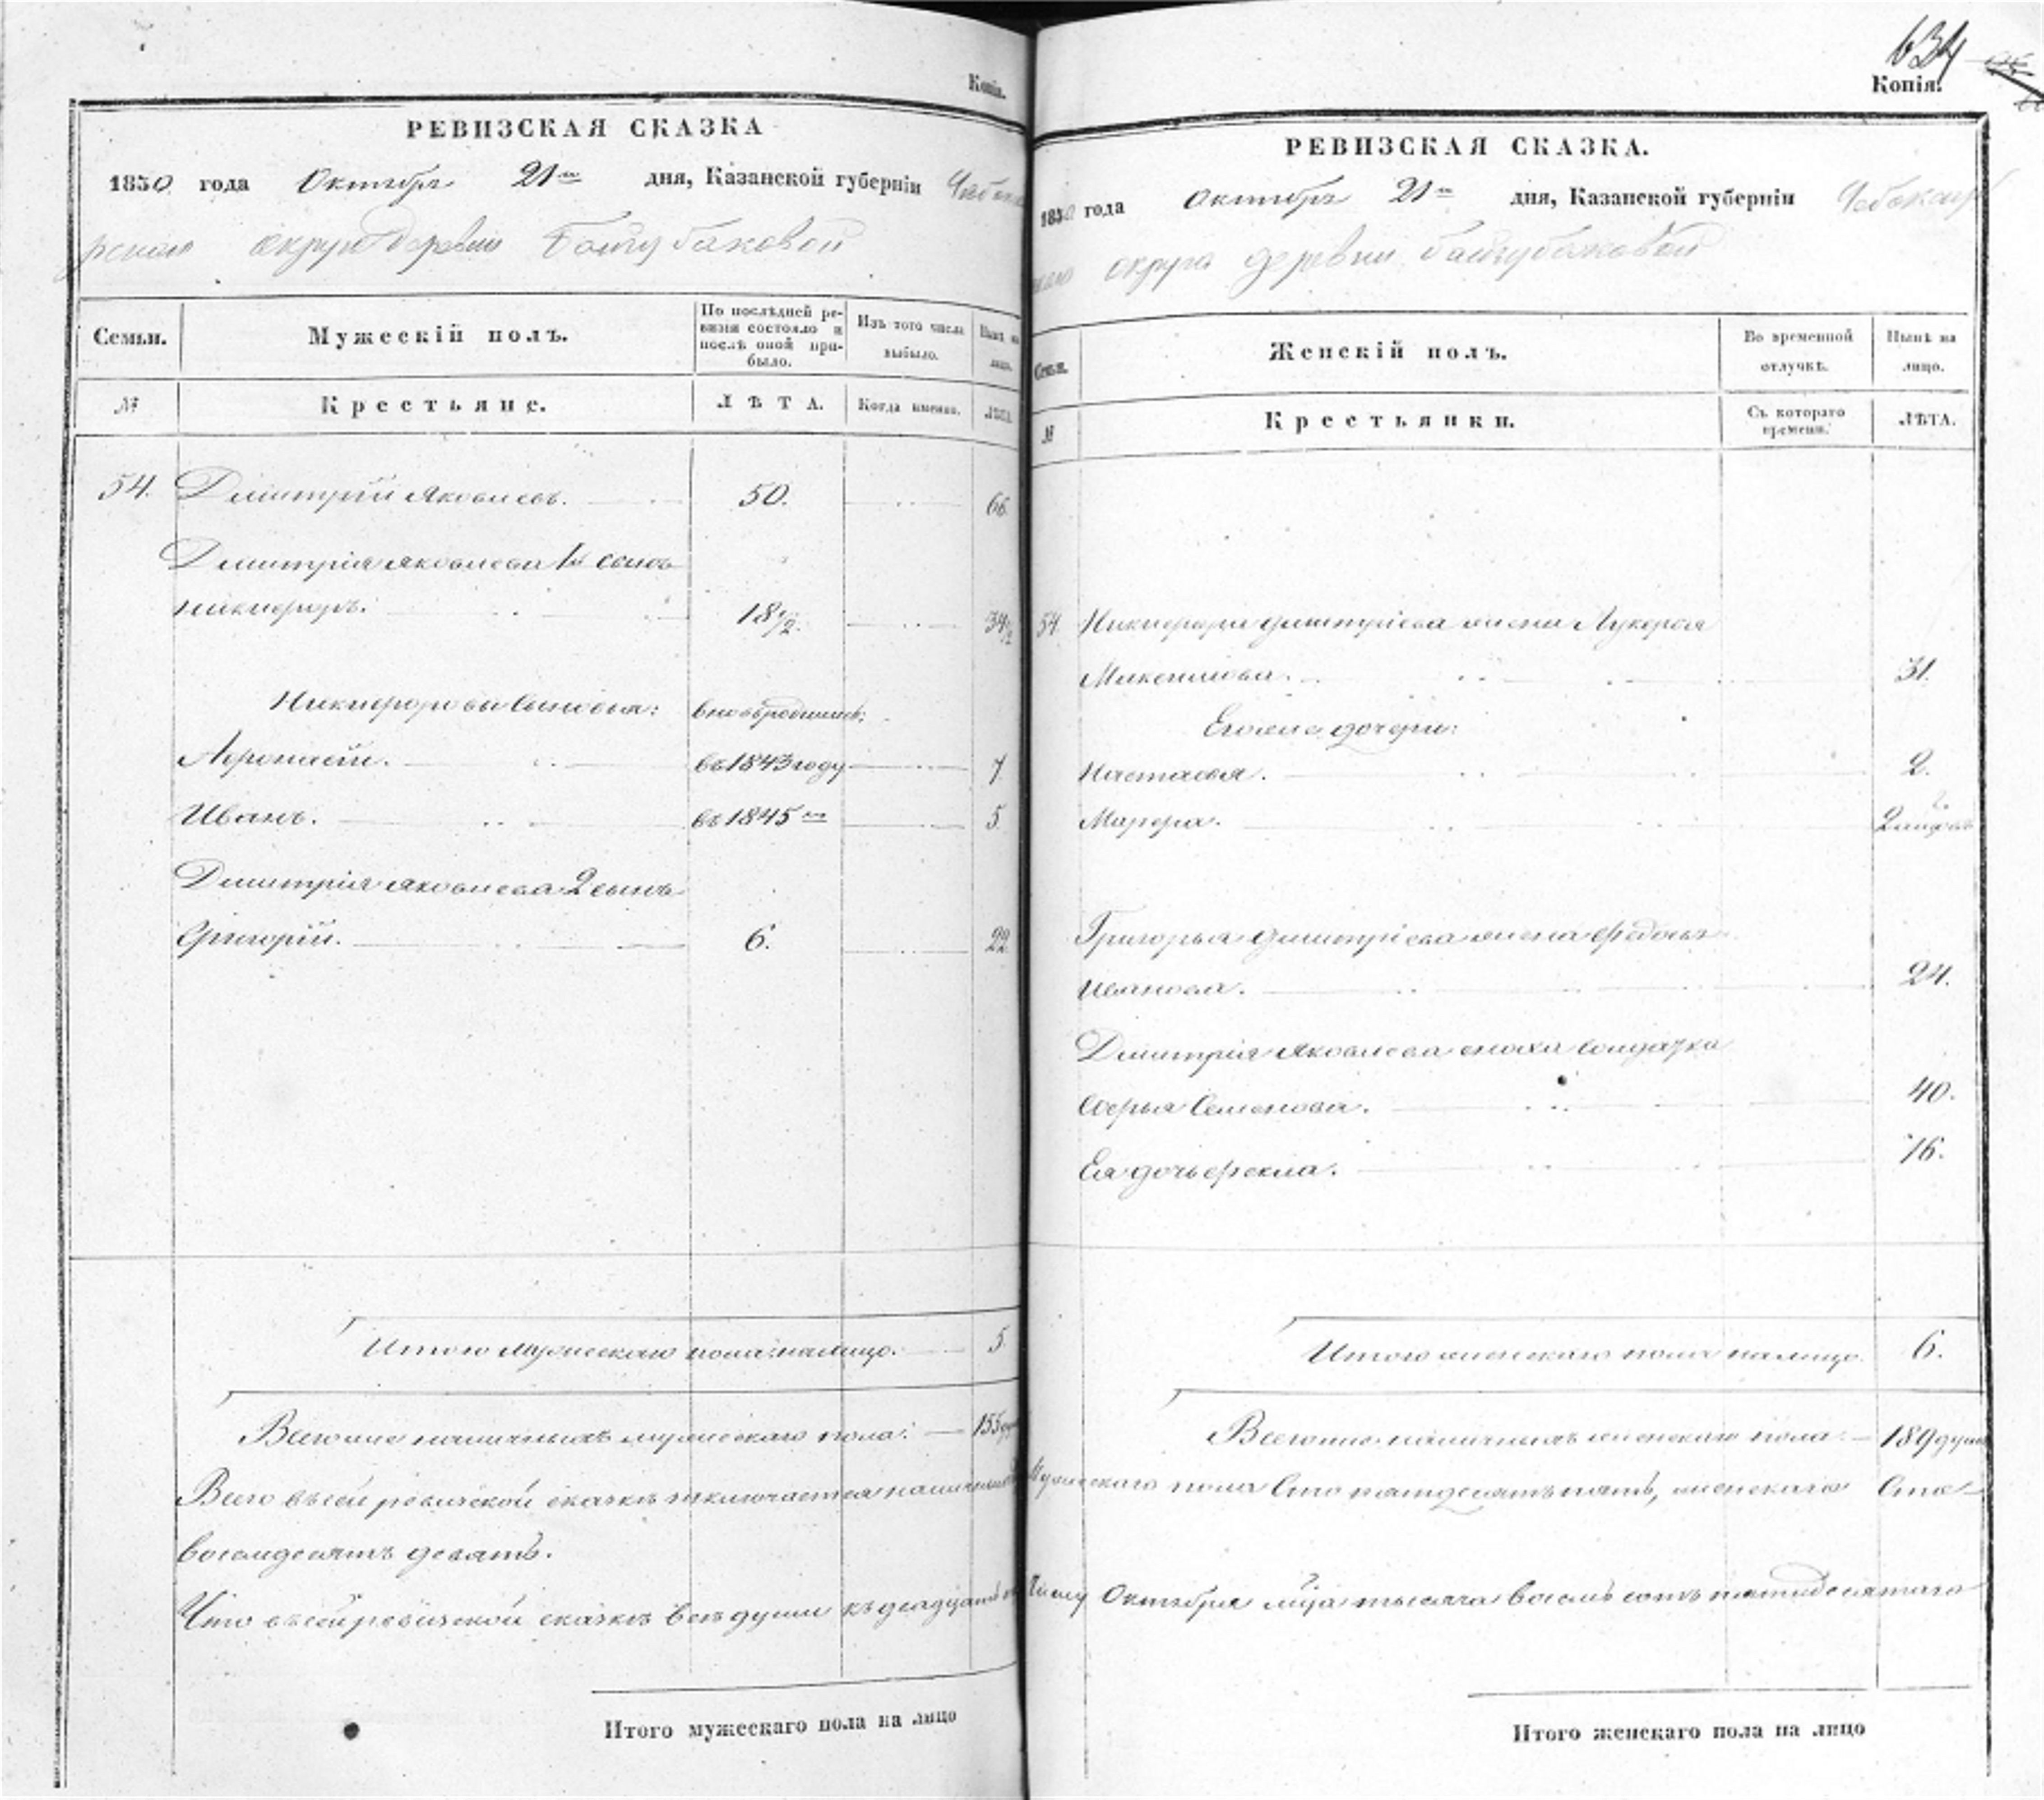 Копія.
РЕВИЗСКАЯ СКАЗКА
1850 года Октября 21го дня, Казанской губерніи Чебокса
рскаго округа деревни
Семьи.
Мужескій полъ.
По послѣдней ре-
визіи состояло и
послѣ оной при-
было.
Изъ того числа
выбыло.
Нынѣ на
лицо.
№
Крестьяне.
ЛѢТА.
Когда именно.
ЛѢТА.
54. Дмитрій Яковлевъ. 50. 66.
Дмитрія Яковлева 1й сынъ
Никифоръ. 18 1/2. 34 1/2
Никифоровы сыновья: вновь родились:
Афонасій. въ 1843 году 7
Иванъ. въ 1845м 5.
Дмитрія Яковлева 2 сынъ
Григорій. 6. 22.
Итого мужескаго пола налицо. 5.
Всего же наличныхъ мужескаго пола: 155 ду
Всего въ сей ревизской сказкѣ заключается наличныхъ
восемдесятъ девять.
Что въ сей ревизской сказкѣ всѣ души къ двадцать
Итого мужескаго пола на лицо
634
Копія.
РЕВИЗСКАЯ СКАЗКА.
1850 года Октября 21го дня, Казанской губерніи Чебоксар
скаго округа деревни
Семьи.
Женскій полъ.
Во временной
отлучкѣ.
Нынѣ на
лицо.
№
Крестьянки.
Съ котораго
времени.
ЛѢТА.
54. Никифора Дмитріева жена Лукерья
Микешкова. 31.
Его же дочери:
Настасья. 2.
Марфа. 2
Григорья Дмитріева жена Федосья
Иванова. 24.
Дмитрія Яковлева сноха солдатка
Софья Семенова. 40.
Ея дочь Фекла. 16.
Итого женскаго пола налицо. 6.
Всего же наличныхъ женскаго пола. 189 душъ
Мужескаго пола сто пятдесятъ пять, женскаго Сто
числу Октября мца тысяча восемь сотъ пятидесятаго
Итого женскаго пола на лицо